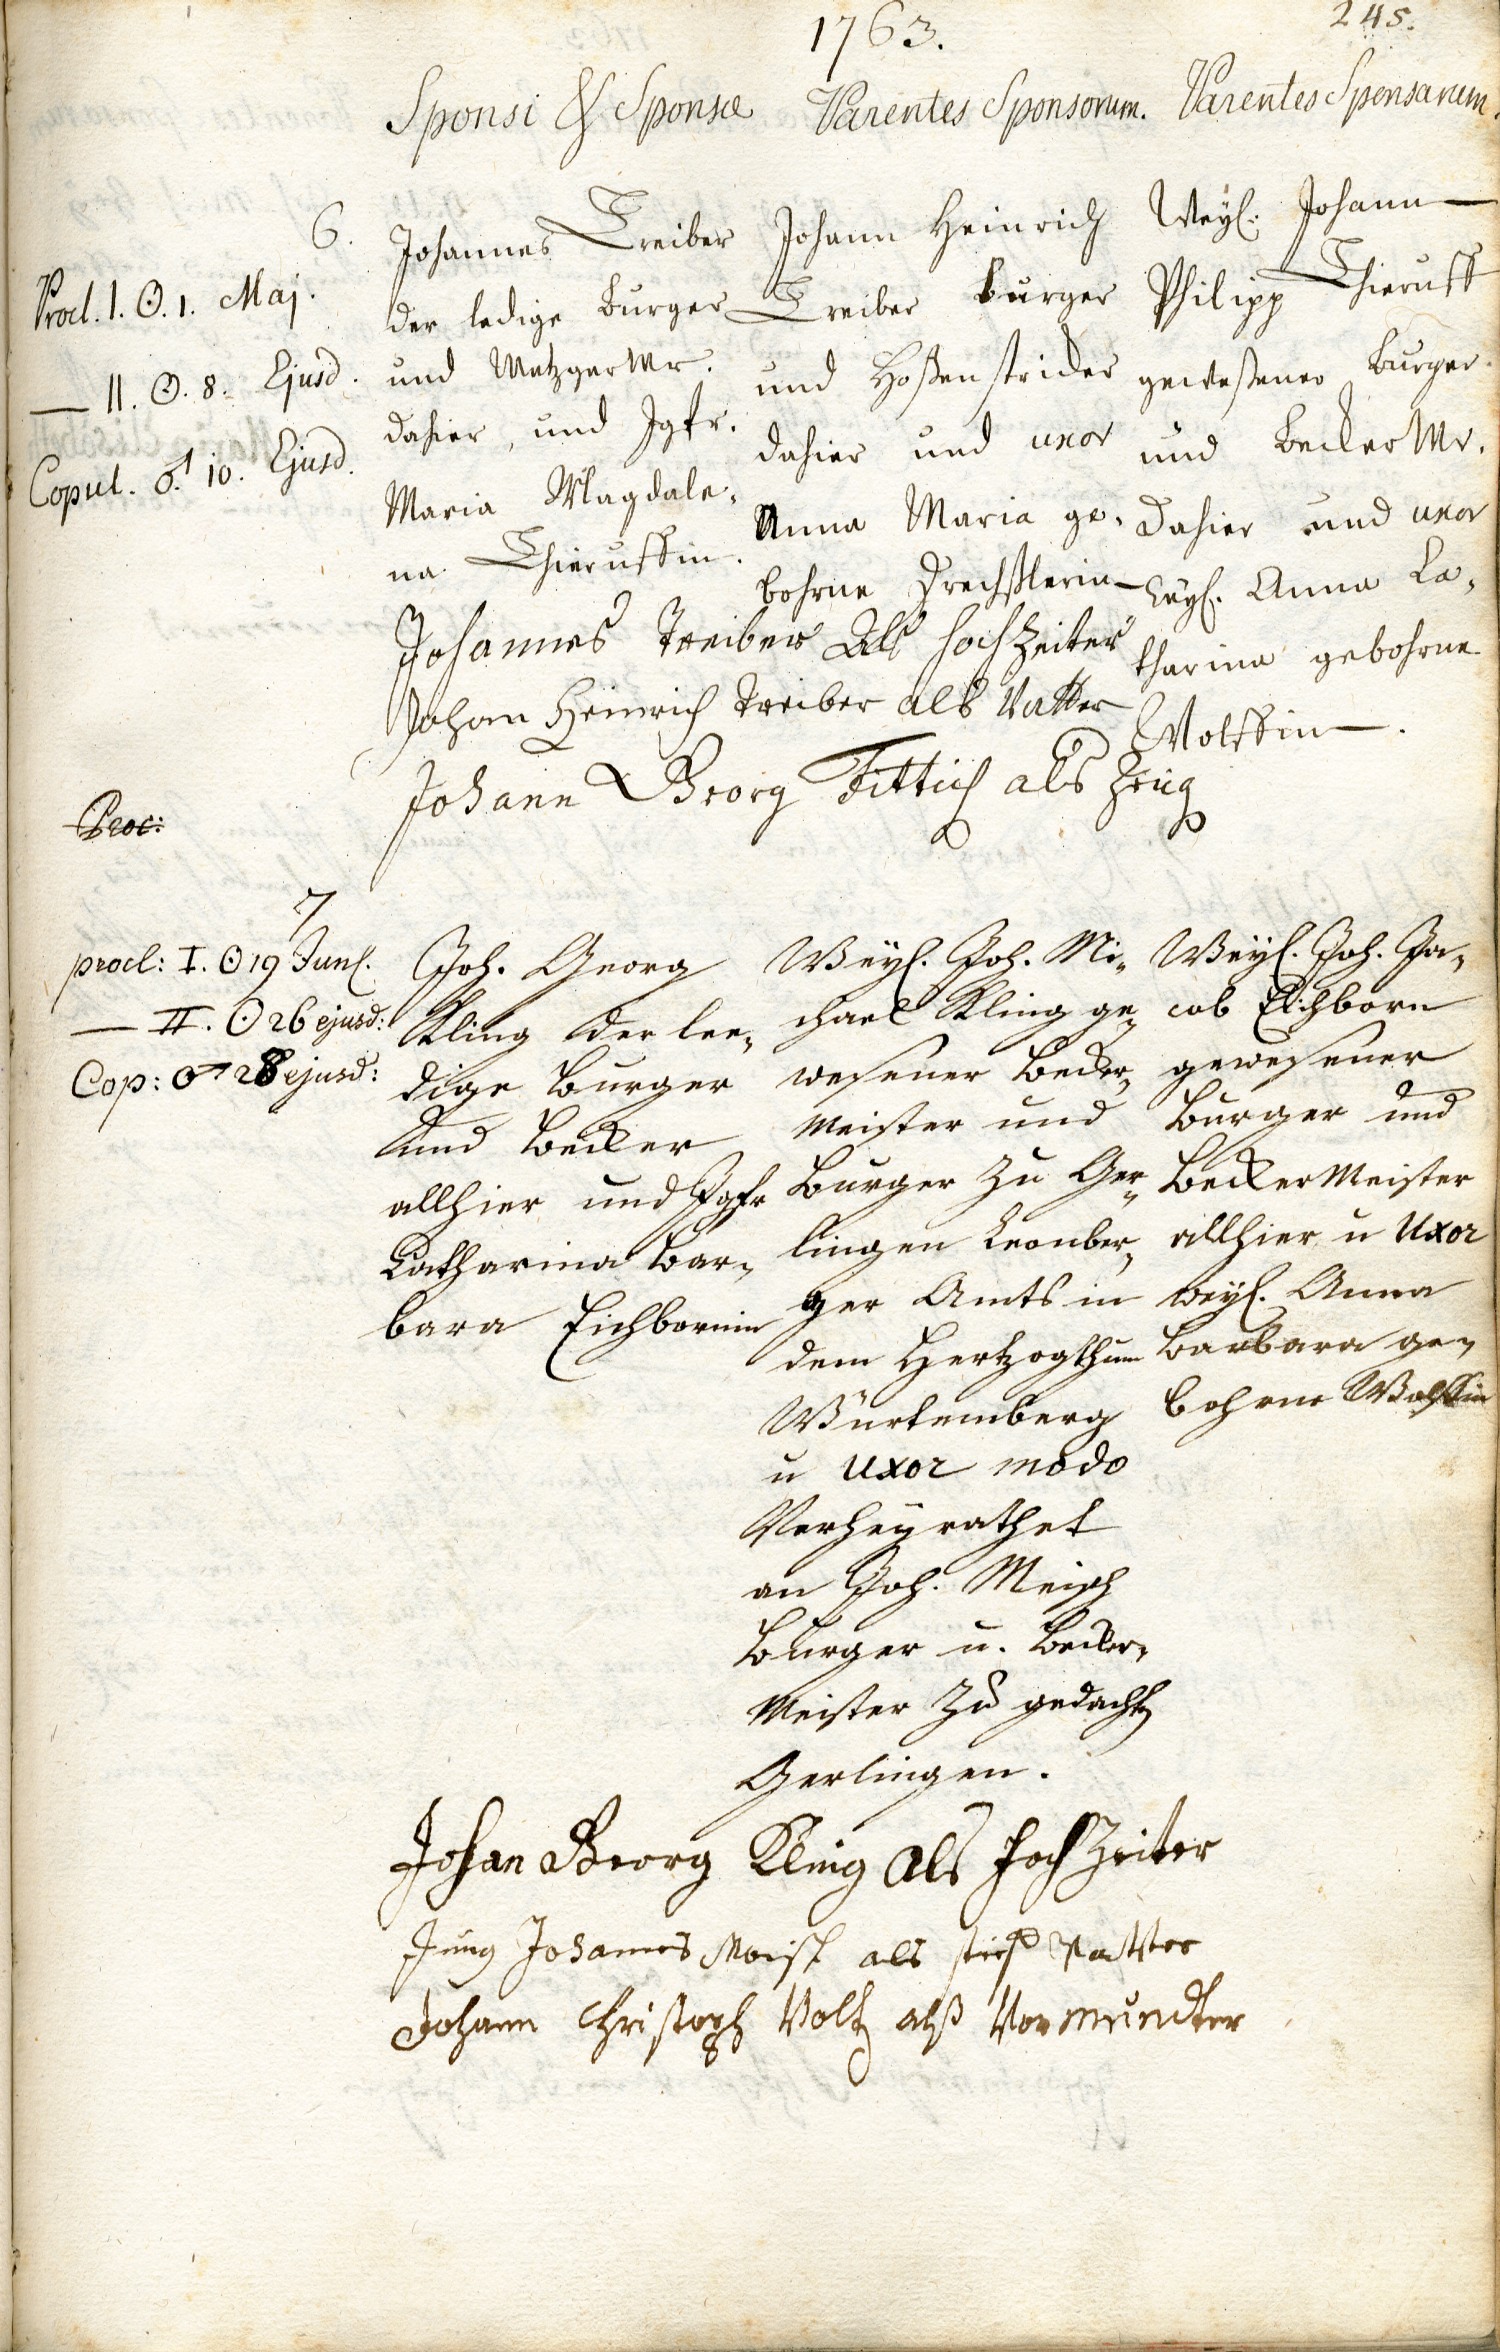 1763.
245.
Sponsi & Sponsæ
Parentes Sponsorum.
Parentes Sponsarum.
6.
Procl. I. ☉. 1. Maj.
— II. ☉. 8. Ejusd.
Copul. ♂. 10. Ejusd.
Johannes Treiber
der ledige Burger
und MetzgerMr.
dahier, und Jgfr.
Maria Magdale-
na Thieruffin.
Johann Heinrich
Treiber Burger
und Hoßenstricker
dahier und uxor
Anna Maria ge-
bohrne Drechßlerin
Weyl. Johann
Philipp Thieruff
geweßener Burger
und BeckerMr.
dahier und uxor
weyl. Anna Ca-
tharina gebohrne
Wolffin.
Johannes Treiber Als hochzeiter
Johan Heinrich Treiber als Vatter
Johann Georg Fittich als Zeug
Proc:
7
procl: I. ☉ 19 Junl.
— II. ☉ 26 ejusd:
Cop: ♂ 28 ejusd:
Joh. Georg
Kling der lee-
dige Burger
und Becker
allhier und Jgfr
Catharina Bar-
bara Eichbornin
Weyl. Joh. Mi-
chael Kling ge-
wesener Becker-
Meister und
Burger zu Ger-
lingen Leonber-
ger Amts in
dem Hertzogthum
Würtemberg
u Uxor modo
Verheyrathet
an Joh. Meisch
Burger u. Becker-
Meister zu gedacht
Gerlingen.
Weyl. Joh. Ja-
cob Eichborn
gewesener
Burger und
BeckerMeister
allhier u Uxor
weyl. Anna
Barbara ge-
bohrne Wolffin
Johan Georg Kling als Hochzeiter
Jung Johannes Meisch als stief Vatter
Johann Christoph Voltz alß Vormundter